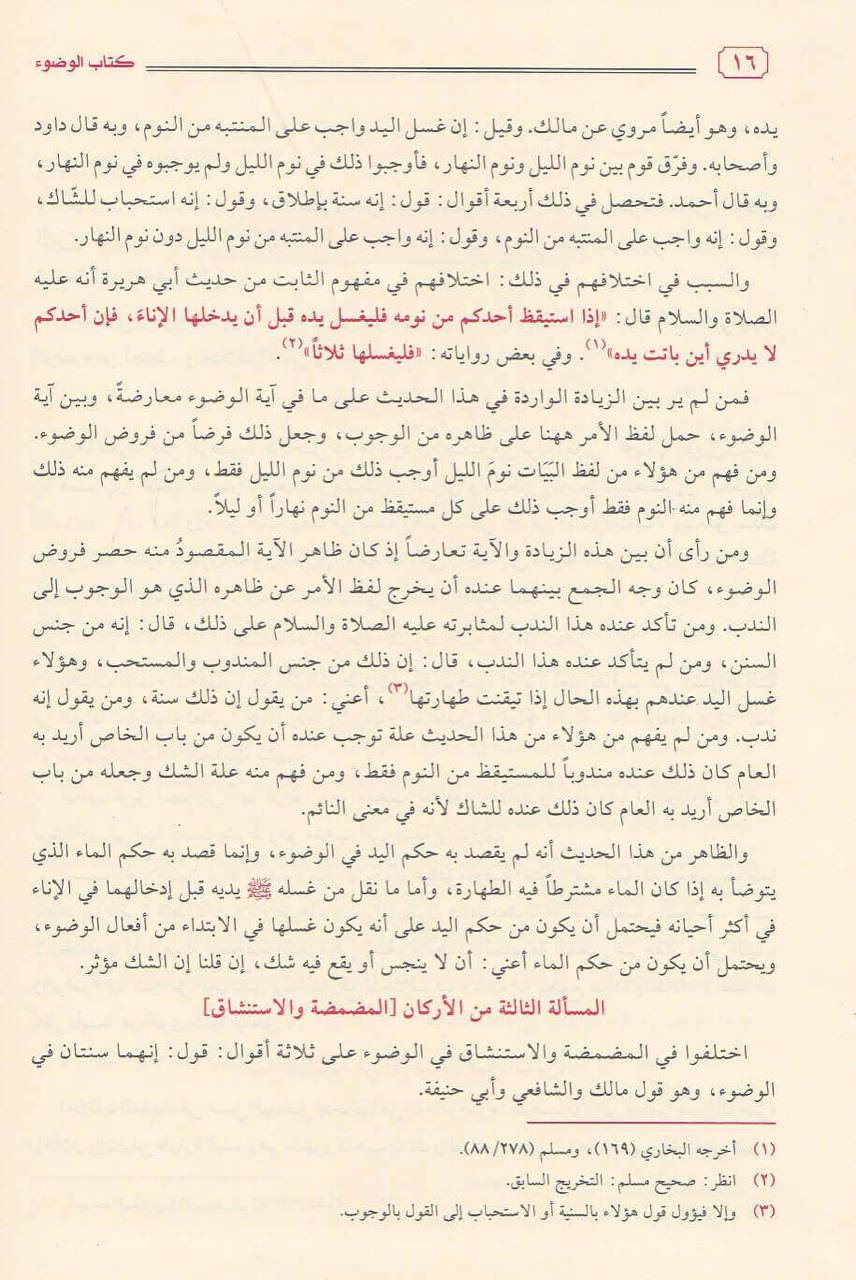 ١٦ كتاب الوضوء
يده، وهو أيضاً مروي عن مالك. وقيل: إن غسل اليد واجب على المنتبه من النوم، وبه قال داود
وأصحابه. وفرّق قوم بين نوم الليل ونوم النهار، فأوجبوا ذلك في نوم الليل ولم يوجبوه في نوم النهار،
وبه قال أحمد. فتحصل في ذلك أربعة أقوال: قول: إنه سنة بإطلاق، وقول: إنه استحباب للشّاك،
وقول: إنه واجب على المنتبه من النوم، وقول: إنه واجب على المنتبه من نوم الليل دون نوم النهار.
والسبب في اختلافهم في ذلك: اختلافهم في مفهوم الثابت من حديث أبي هريرة أنه عليه
الصلاة والسلام قال: «إذا استيقظ أحدكم من نومه فليغسل يده قبل أن يدخلها الإناءَ، فإن أحدكم
لا يدري أين باتت يده»(١). وفي بعض رواياته: «فليغسلها ثلاثاً»(٢).
فمن لم ير بين الزيادة الواردة في هذا الحديث على ما في آية الوضوء معارضةً، وبين آية
الوضوء، حمل لفظ الأمر ههنا على ظاهره من الوجوب، وجعل ذلك فرضاً من فروض الوضوء.
ومن فهم من هؤلاء من لفظ البَيَات نومَ الليل أوجب ذلك من نوم الليل فقط، ومن لم يفهم منه ذلك
وإنما فهم منه النوم فقط أوجب ذلك على كل مستيقظ من النوم نهاراً أو ليلاً.
ومن رأى أن بين هذه الزيادة والآية تعارضاً إذ كان ظاهر الآية المقصودُ منه حصر فروض
الوضوء، كان وجه الجمع بينهما عنده أن يخرج لفظ الأمر عن ظاهره الذي هو الوجوب إلى
الندب. ومن تأكد عنده هذا الندب لمثابرته عليه الصلاة والسلام على ذلك، قال: إنه من جنس
السنن، ومن لم يتأكد عنده هذا الندب، قال: إن ذلك من جنس المندوب والمستحب، وهؤلاء
غسل اليد عندهم بهذه الحال إذا تيقنت طهارتها(٣)، أعني: من يقول إن ذلك سنة، ومن يقول إنه
ندب. ومن لم يفهم من هؤلاء من هذا الحديث علة توجب عنده أن يكون من باب الخاص أريد به
العام كان ذلك عنده مندوباً للمستيقظ من النوم فقط، ومن فهم منه علة الشك وجعله من باب
الخاص أريد به العام كان ذلك عنده للشاك لأنه في معنى النائم.
والظاهر من هذا الحديث أنه لم يقصد به حكم اليد في الوضوء، وإنما قصد به حكم الماء الذي
يتوضأ به إذا كان الماء مشترطاً فيه الطهارة، وأما ما نقل من غسله ﷺ يديه قبل إدخالهما في الإناء
في أكثر أحيانه فيحتمل أن يكون من حكم اليد على أنه يكون غسلها في الابتداء من أفعال الوضوء،
ويحتمل أن يكون من حكم الماء أعني: أن لا ينجس أو يقع فيه شك، إن قلنا إن الشك مؤثر.
المسألة الثالثة من الأركان [المضمضة والاستنشاق]
اختلفوا في المضمضة والاستنشاق في الوضوء على ثلاثة أقوال: قول: إنهما سنتان في
الوضوء، وهو قول مالك والشافعي وأبي حنيفة.
(١) أخرجه البخاري (١٦٩)، ومسلم (٨٨/٢٧٨).
(٢) انظر: صحيح مسلم: التخريج السابق.
(٣) وإلا فيؤول قول هؤلاء بالسنية أو الاستحباب إلى القول بالوجوب.